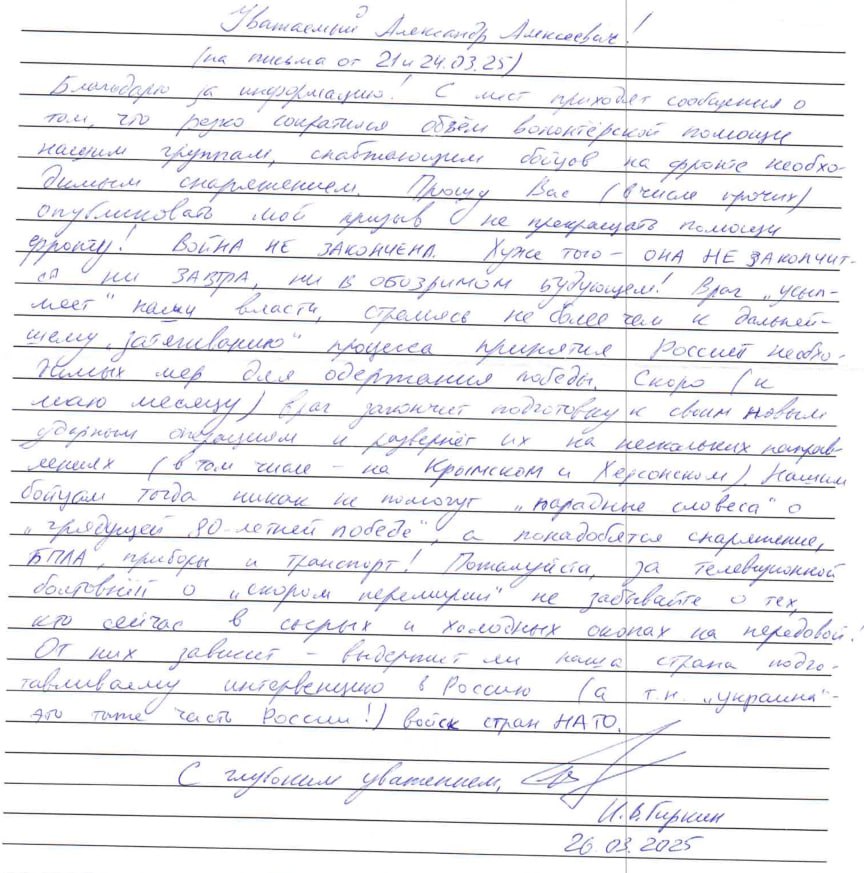 Уважаемый Александр Алексеевич!
(на письма от 21 и 24.03.25)
Благодарю за информацию! С мест приходят сообщения о
том, что резко сократился объём волонтёрской помощи
нашим группам, снабжающим бойцов на фронте необхо-
димым снаряжением. Прошу Вас (в числе прочих)
опубликовать мой призыв не прекращать помощи
фронту! ВОЙНА НЕ ЗАКОНЧЕНА. Хуже того - ОНА НЕ ЗАКОНЧИТ-
СЯ НИ ЗАВТРА, НИ В ОБОЗРИМОМ БУДУЮЩЕМ! Враг „усып-
ляет" нашу власть, стремясь не более чем к дальней-
шему „затягиванию" процесса принятия Россией необхо-
димых мер для одержания победы. Скоро (к
маю месяцу) враг закончит подготовку к своим новым
ударным операциям и развернёт их на нескольких направ-
лениях (в том числе - на Крымском и Херсонском). Нашим
бойцам тогда никак не помогут „парадные словеса" о
„грядущей 80-летней победе", а понадобятся снаряжение,
БПЛА, приборы и транспорт! Пожалуйста, за телевизионной
болтовнёй о „скором перемирии" не забывайте о тех,
кто сейчас в сырых и холодных окопах на передовой!
От них зависит - выдержит ли наша страна подго-
тавливаемую интервенцию в Россию (а т.н. „украина" -
это тоже часть России!) войск стран НАТО.
С глубоким уважением,
И.В. Гиркин
26.03.2025